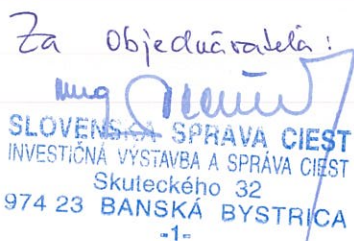 Za objednávateľa:
Ing
SLOVENSKÁ SPRÁVA CIEST
INVESTIČNÁ VÝSTAVBA A SPRÁVA CIEST
Skuteckého 32
974 23 BANSKÁ BYSTRICA
-1-